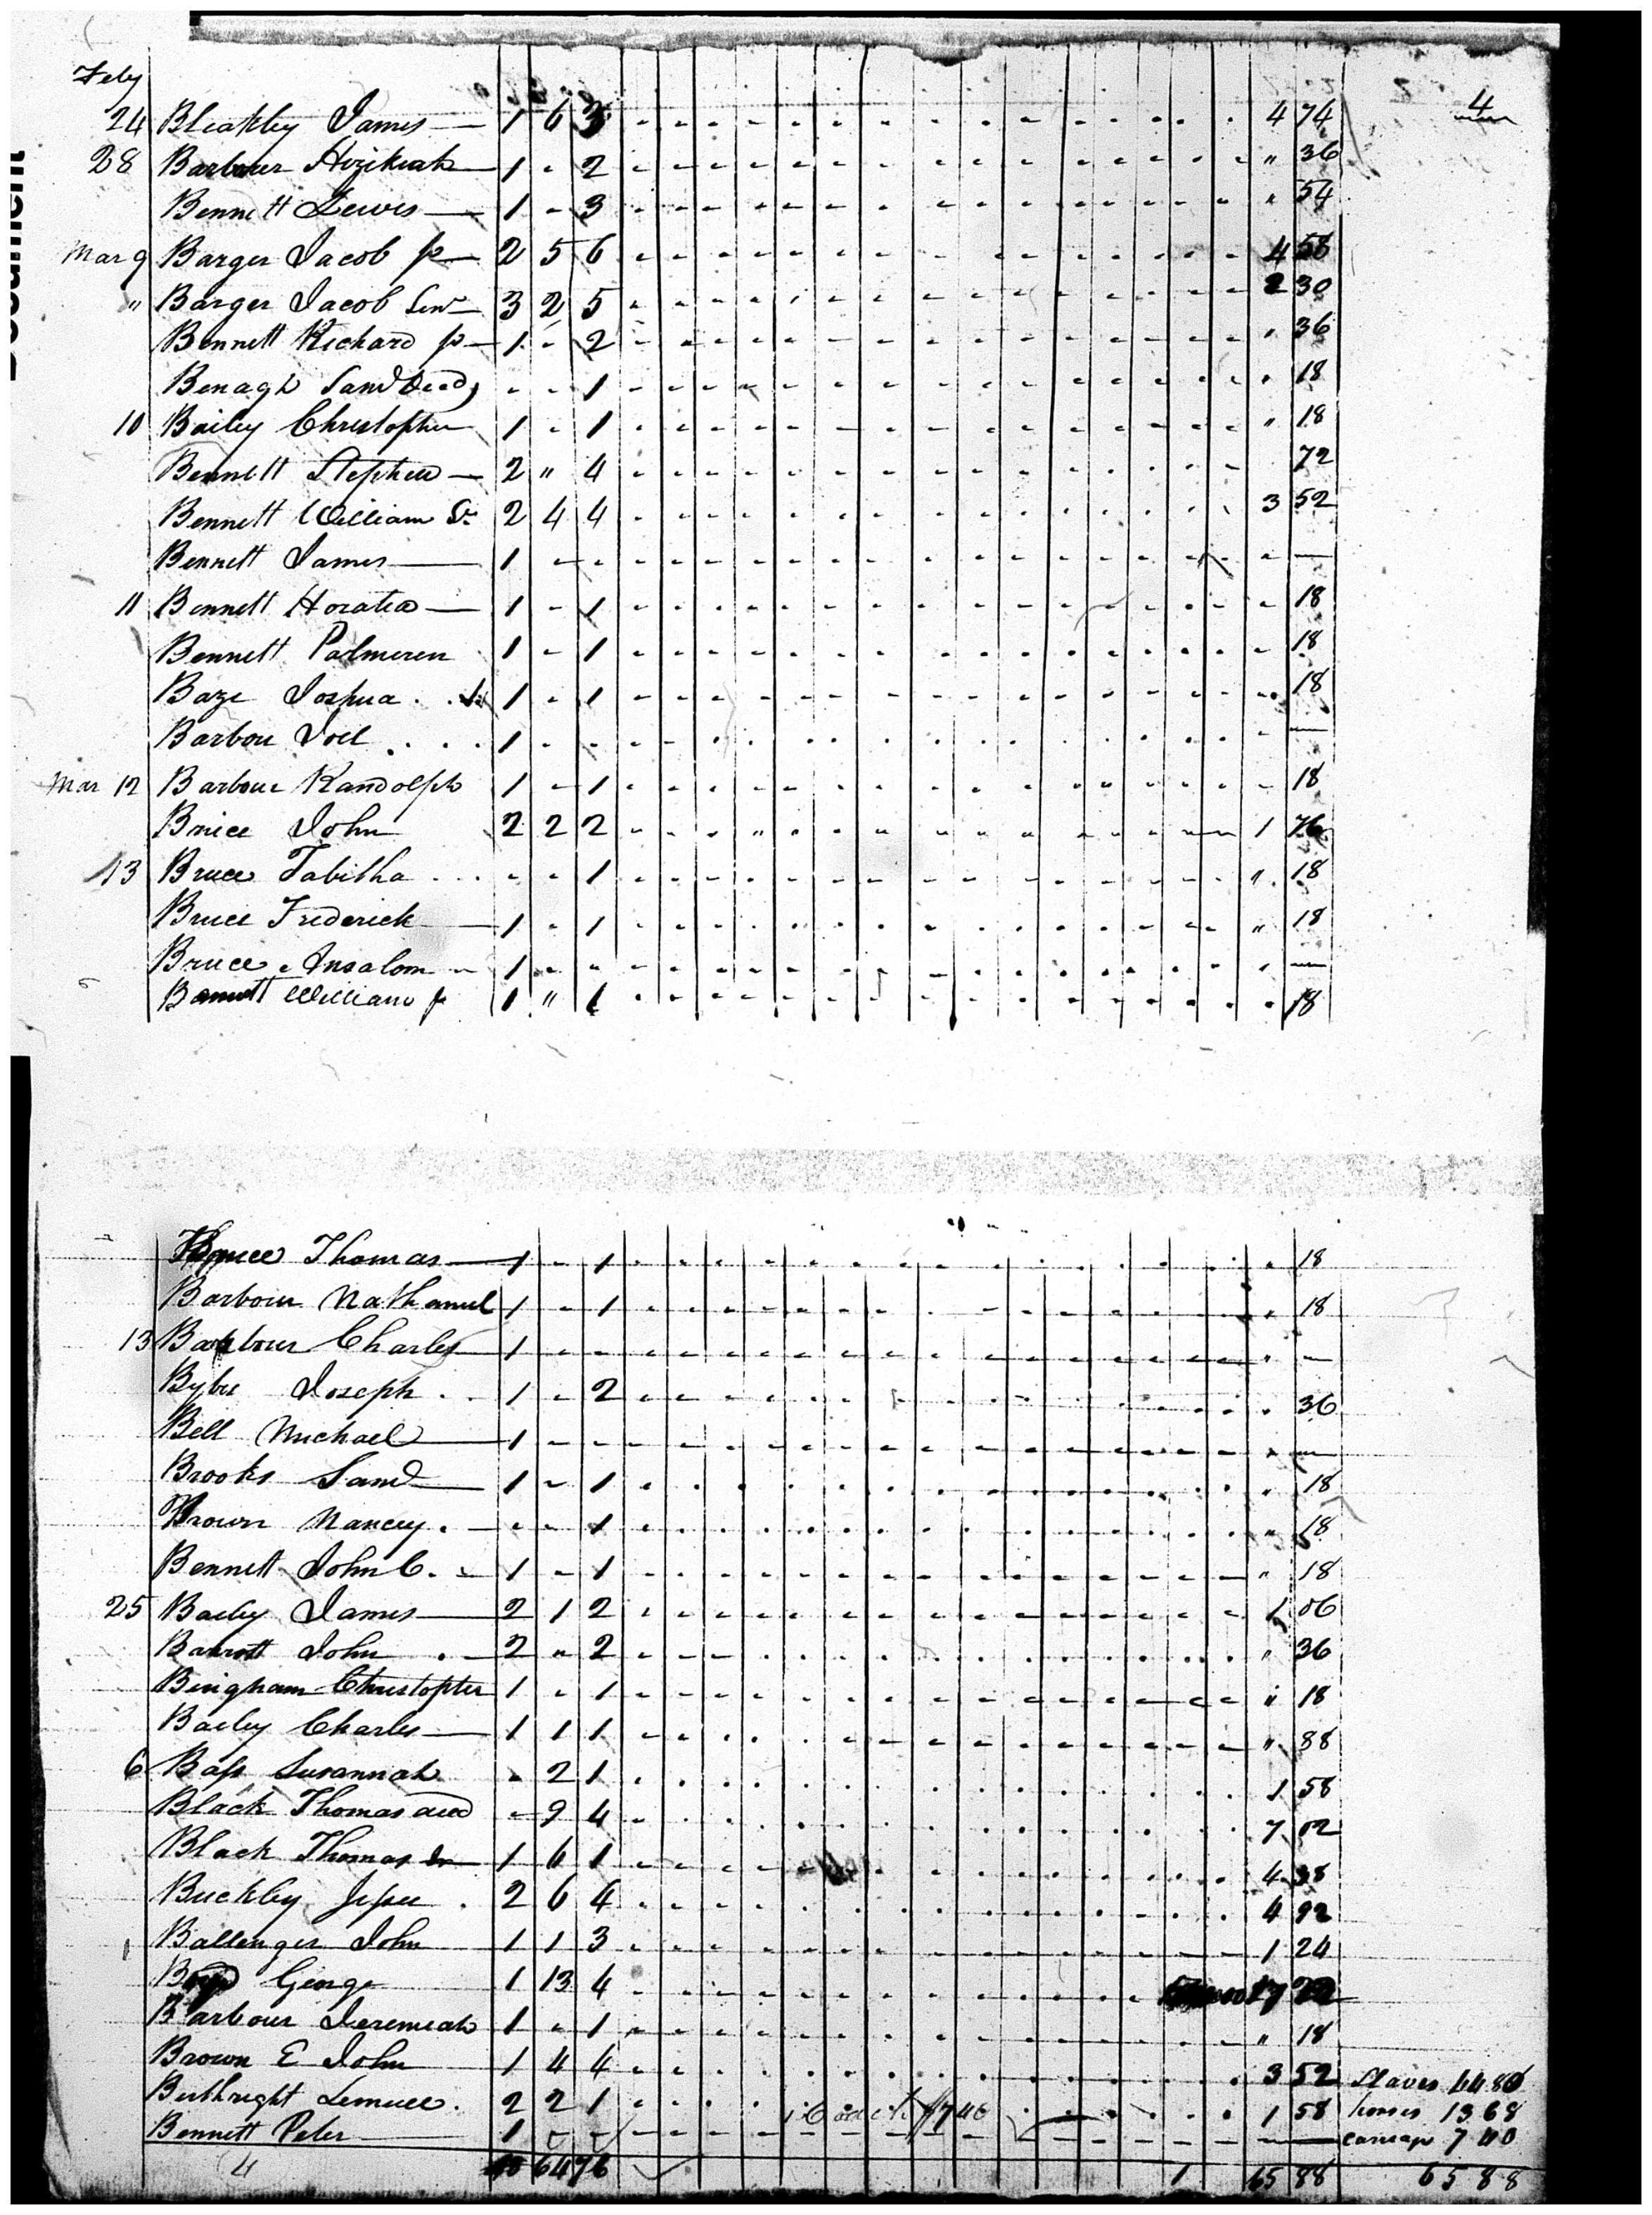 Feby 4
24 Bleakley James — 1 6 3 - - - - - - - - - - - - - - - 4 74
28 Barbour Hezikiah — 1 - 2 - - - - - - - - - - - - - - - " 36
Bennett Lewis — 1 - 3 - - - - - - - - - - - - - - - " 54
Mar 9 Barger Jacob jr — 2 5 6 - - - - - - - - - - - - - - - 4 58
" Barger Jacob Senr — 3 2 5 - - - - - - - - - - - - - - - 2 30
Bennett Richard jr — 1 - 2 - - - - - - - - - - - - - - - " 36
Benagh Saml - - 1 - - - - - - - - - - - - - - - " 18
10 Bailey Christopher 1 - 1 - - - - - - - - - - - - - - - " 18
Bennett Stephen — 2 " 4 - - - - - - - - - - - - - - - 72
Bennett William Sr 2 4 4 - - - - - - - - - - - - - - - 3 52
Bennett James — 1 - - - - - - - - - - - - - - - - - - —
11 Bennett Horatio — 1 - 1 - - - - - - - - - - - - - - - - 18
Bennett Palmeren 1 - 1 - - - - - - - - - - - - - - - - 18
Baze Joshua 1 - 1 - - - - - - - - - - - - - - - - 18
Barbou Joel . . . 1 - - - - - - - - - - - - - - - - - - —
Mar 12 Barbour Randolph 1 - 1 - - - - - - - - - - - - - - - - 18
Bruce John 2 2 2 - - - - - - - - - - - - - - - 1 76
13 Bruce Tabitha . . . - - 1 - - - - - - - - - - - - - - - " 18
Bruce Frederick 1 - 1 - - - - - - - - - - - - - - - " 18
Bruce Ansalom 1 - - - - - - - - - - - - - - - - - - —
Bennett William jr 1 " 1 - - - - - - - - - - - - - - - - 18
Bruce Thomas — 1 - 1 - - - - - - - - - - - - - - - " 18
Barbour Nathaniel 1 - 1 - - - - - - - - - - - - - - - " 18
13 Barbour Charles 1 - - - - - - - - - - - - - - - - - " —
Bybee Joseph . . 1 - 2 - - - - - - - - - - - - - - - " 36
Bell Michael — 1 - - - - - - - - - - - - - - - - - " —
Brooks Saml — 1 - 1 - - - - - - - - - - - - - - - " 18
Brown Nancey . — - - 1 - - - - - - - - - - - - - - - " 18
Bennett John C. - 1 - 1 - - - - - - - - - - - - - - - " 18
25 Bailey James — 2 1 2 - - - - - - - - - - - - - - - 1 06
Barrott John . — 2 " 2 - - - - - - - - - - - - - - - " 36
Bingham Christopher 1 - 1 - - - - - - - - - - - - - - - " 18
Bailey Charles — 1 1 1 - - - - - - - - - - - - - - - " 88
6 Bass Susannah - 2 1 - - - - - - - - - - - - - - - 1 58
Black Thomas - 9 4 - - - - - - - - - - - - - - - 7 02
Black Thomas Jr 1 6 1 - - - - - - - - - - - - - - - 4 38
Buckley Jesse . 2 6 4 - - - - - - - - - - - - - - - 4 92
1 Ballenger John 1 1 3 - - - - - - - - - - - - - - - 1 24
George 1 13 4 - - - - - - - - - - - - - - 17 22
Barbour Jeremiah 1 - 1 - - - - - - - - - - - - - - - " 18
Brown E John 1 4 4 - - - - - - - - - - - - - - - 3 52 Slaves 44 80
Buthright Lemuel . 2 2 1 - - - 1 Coach $740 - - - - 1 58 horses 13 68
Bennett Peter — 1 - - - - - - - - - - - - - - - - - - — carriage 7 40
4 64 76 1 65 88 65 88